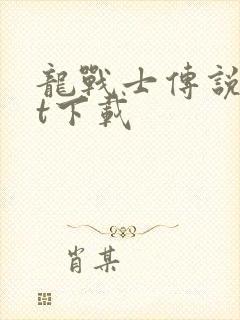 龍戰士傳說
t下載
肖某